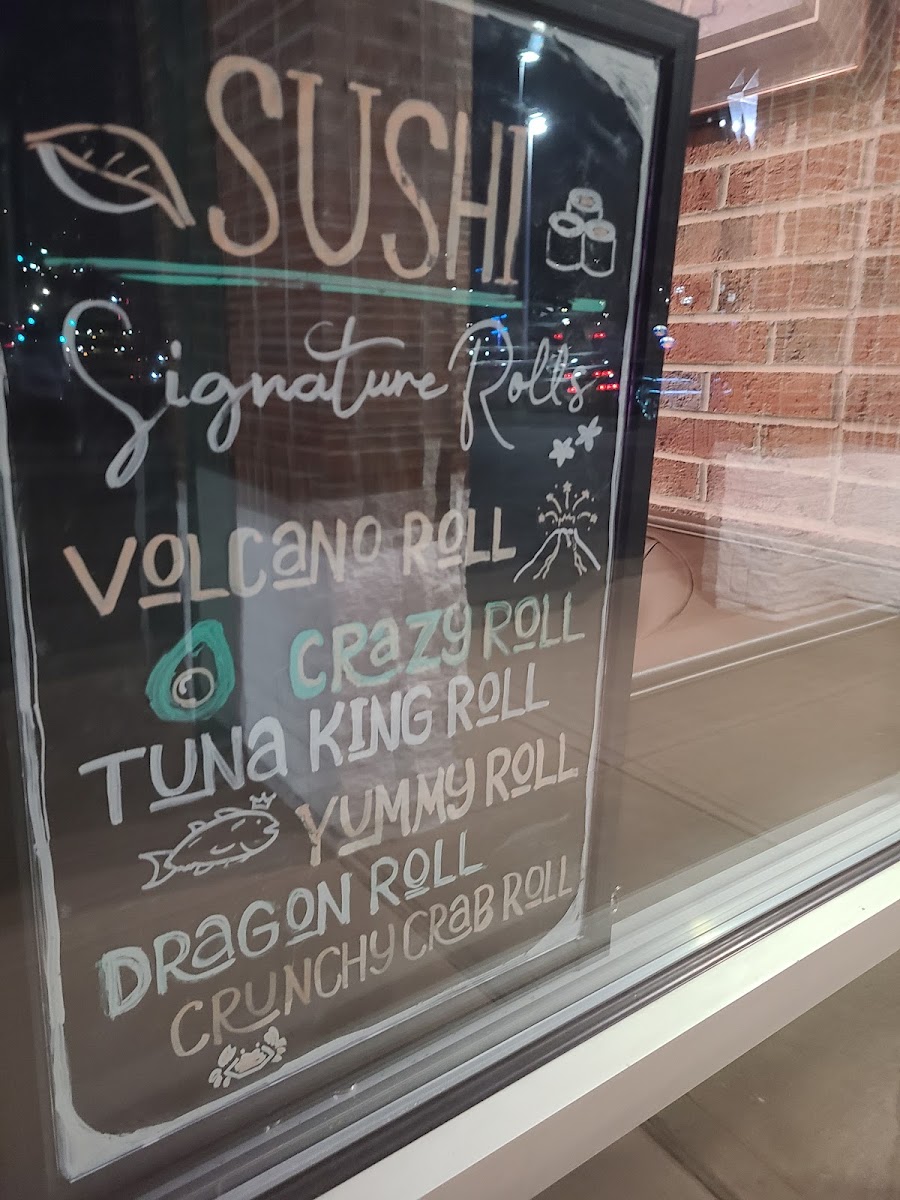 SUSHI
Signature Rolls
VOLCANO ROLL
CRAZY ROLL
TUNA KING ROLL
YUMMY ROLL
DRAGON ROLL
CRUNCHY CRAB ROLL